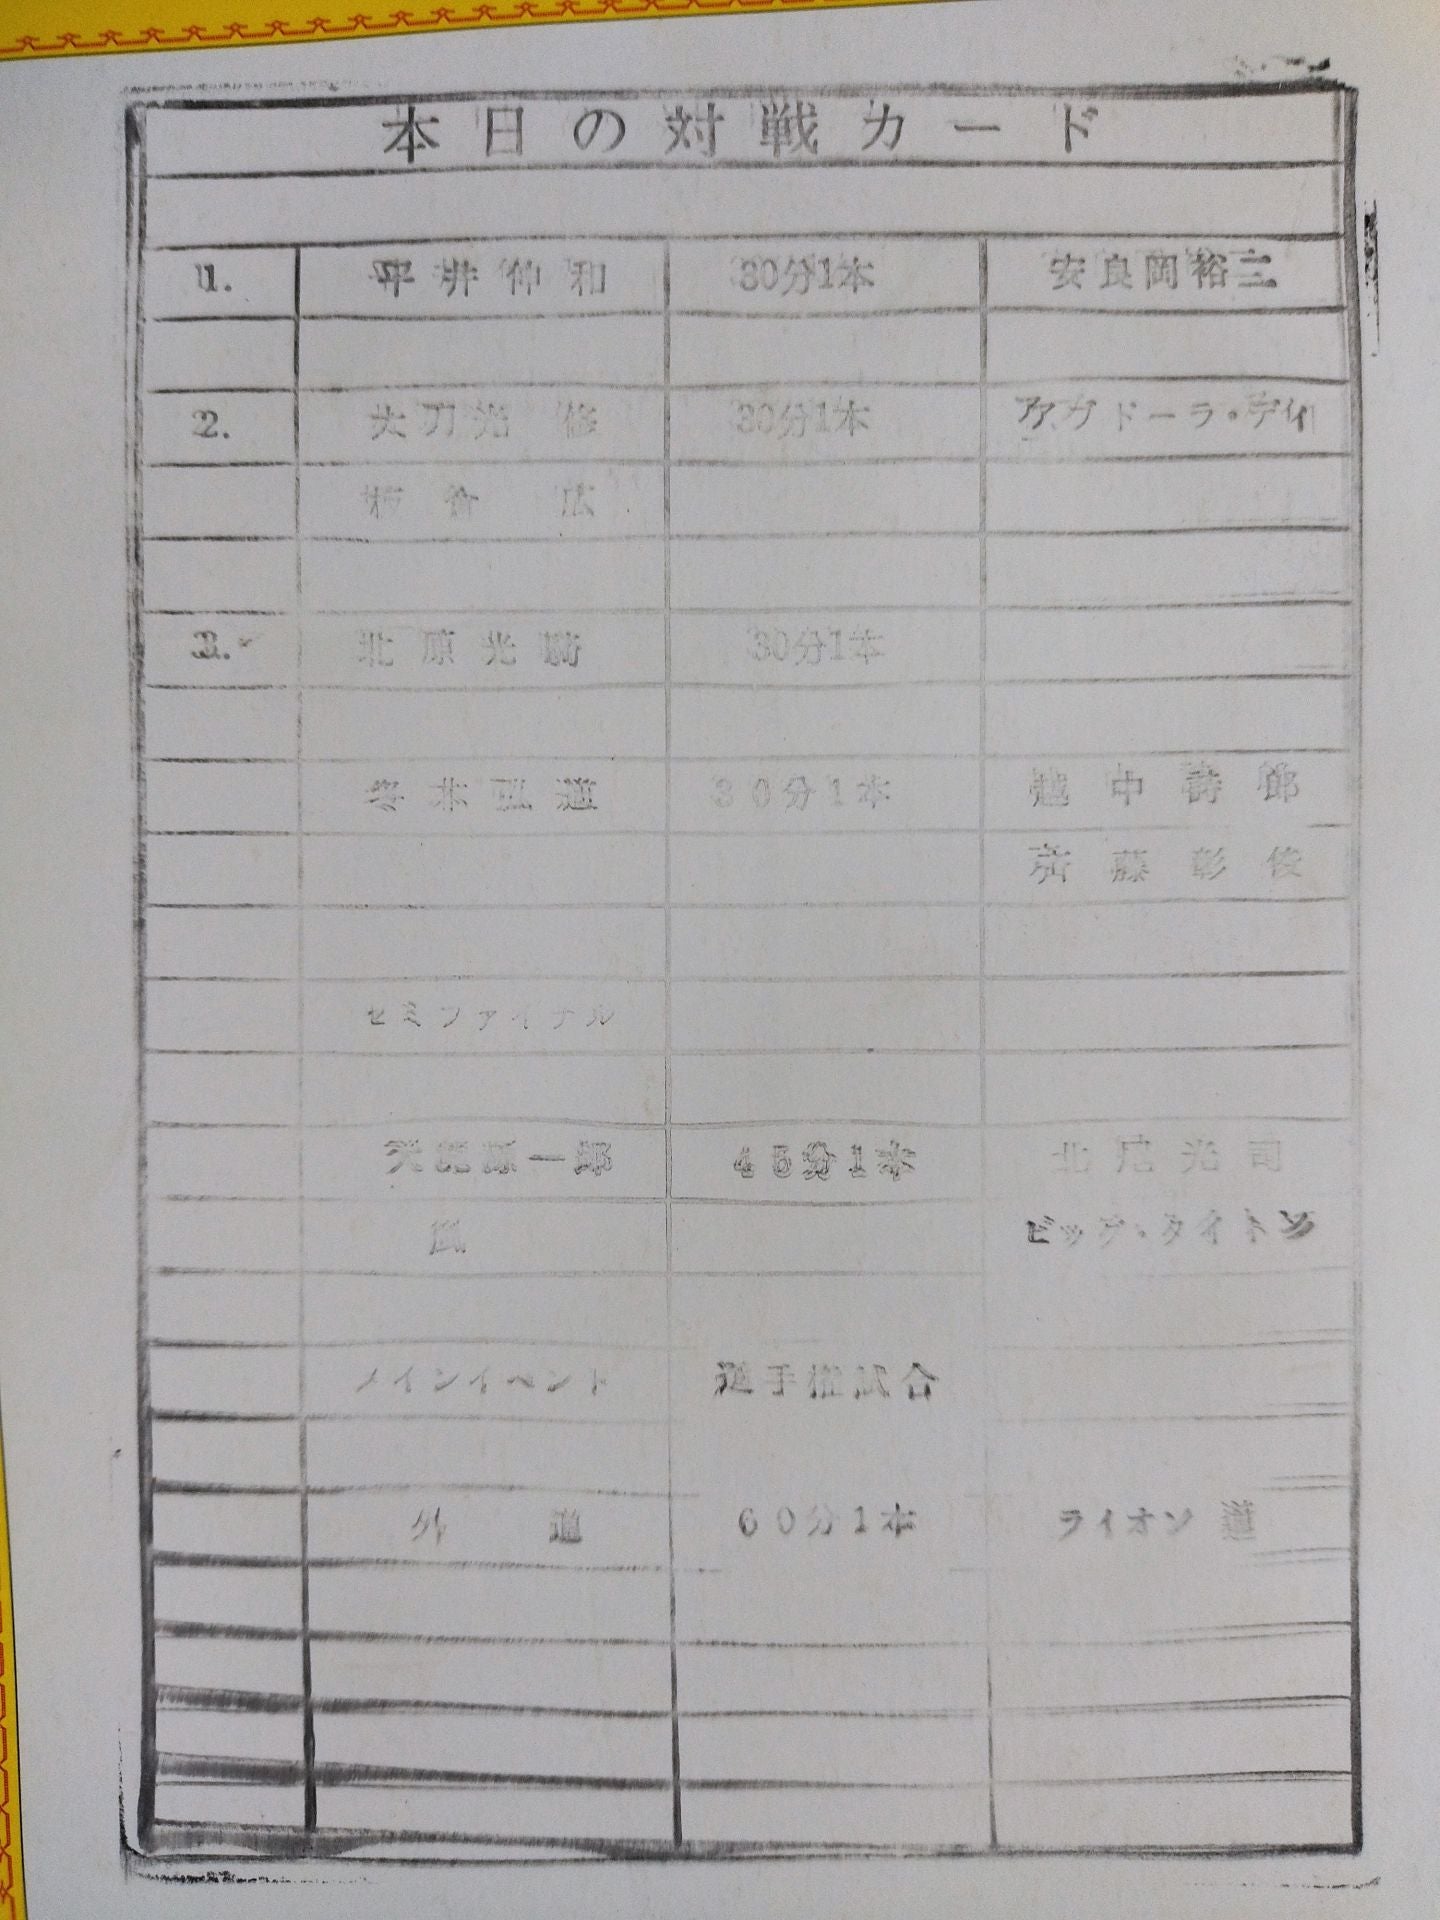 本日の対戦カード
1. 平井伸和 30分1本 安良岡裕二
2. 大刀光 修 30分1本 アカドーラ・ディ
広
3. 北原光騎 30分1本
冬木弘道 30分1本 越中詩郎
斉藤彰俊
セミファイナル
天龍源一郎 45分1本 北尾光司
風 ビッグ・タイトン
メインイベント 選手権試合
外道 60分1本 ライオン道